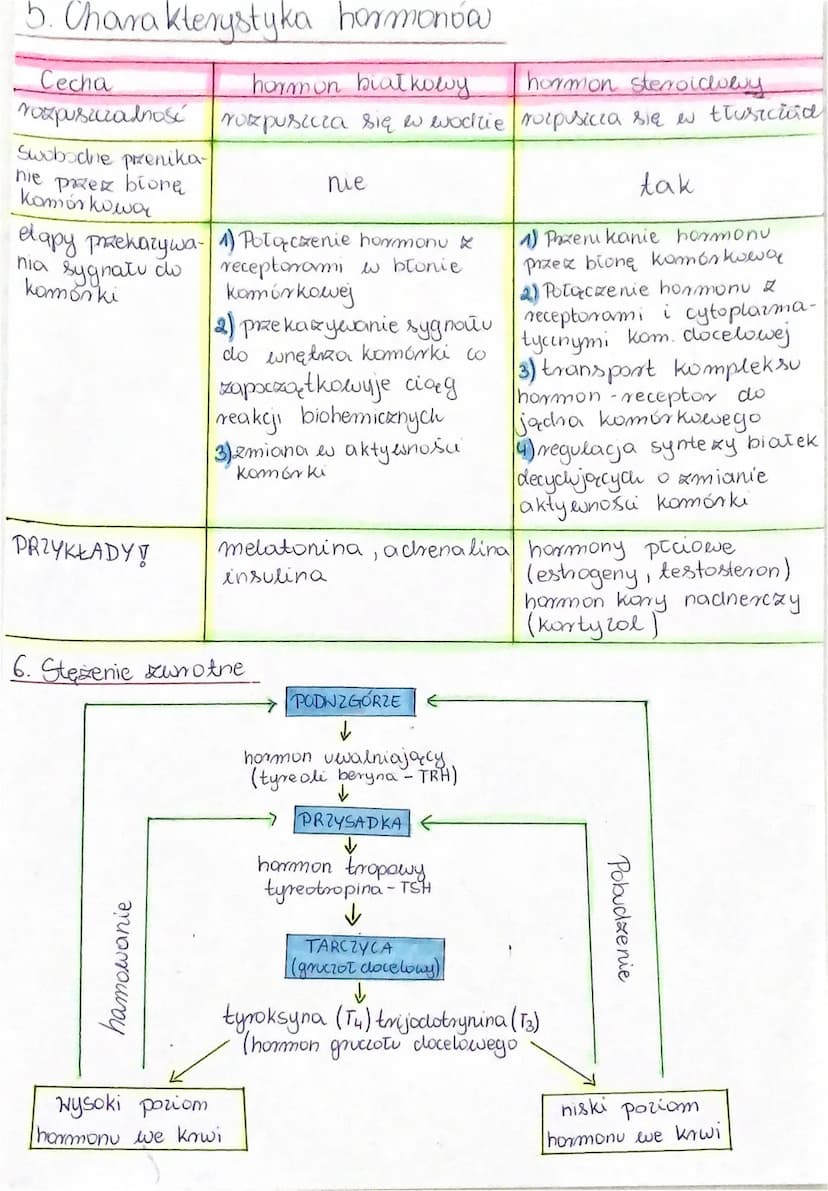 5. Charakterystyka hormonów
Cecha
hormon białkowy
hormon steroidowy
rozpuszczalność
rozpuszcza się w wodzie
rozpuszcza się w tłuszczach
Swobodne przenika-
nie przez błonę
komórkową
nie
tak
etapy przekazywa-
nia sygnału do
komórki
1) Połączenie hormonu z
receptorami w błonie
komórkowej
2) przekazywanie sygnału
do wnętrza komórki co
zapoczątkowuje ciąg
reakcji biohemicznych
3) zmiana w aktywności
komórki
1) Przenikanie hormonu
przez błonę komórkową
2) Połączenie hormonu z
receptorami i cytoplazma-
tycznymi kom. docelowej
3) transport kompleksu
hormon-receptor do
jądra komórkowego
4) regulacja syntezy białek
decydujących o zmianie
aktywności komórki
PRZYKŁADY!
melatonina, adrenalina
insulina
hormony płciowe
(estrogeny, testosteron)
hormon kory nadnerczy
(kortyzol)
6. Stężenie zwrotne
PODWZGÓRZE
hormon uwalniający
(tyreoli beryna - TRH)
PRZYSADKA
hormon tropowy
tyreotropina - TSH
TARCZYCA
(gruczoł docelowy)
tyroksyna (T4) trijodotrynina (T3)
(hormon gruczołu docelowego
hamowanie
Pobudzenie
wysoki poziom
hormonu we krwi
niski poziom
hormonu we krwi